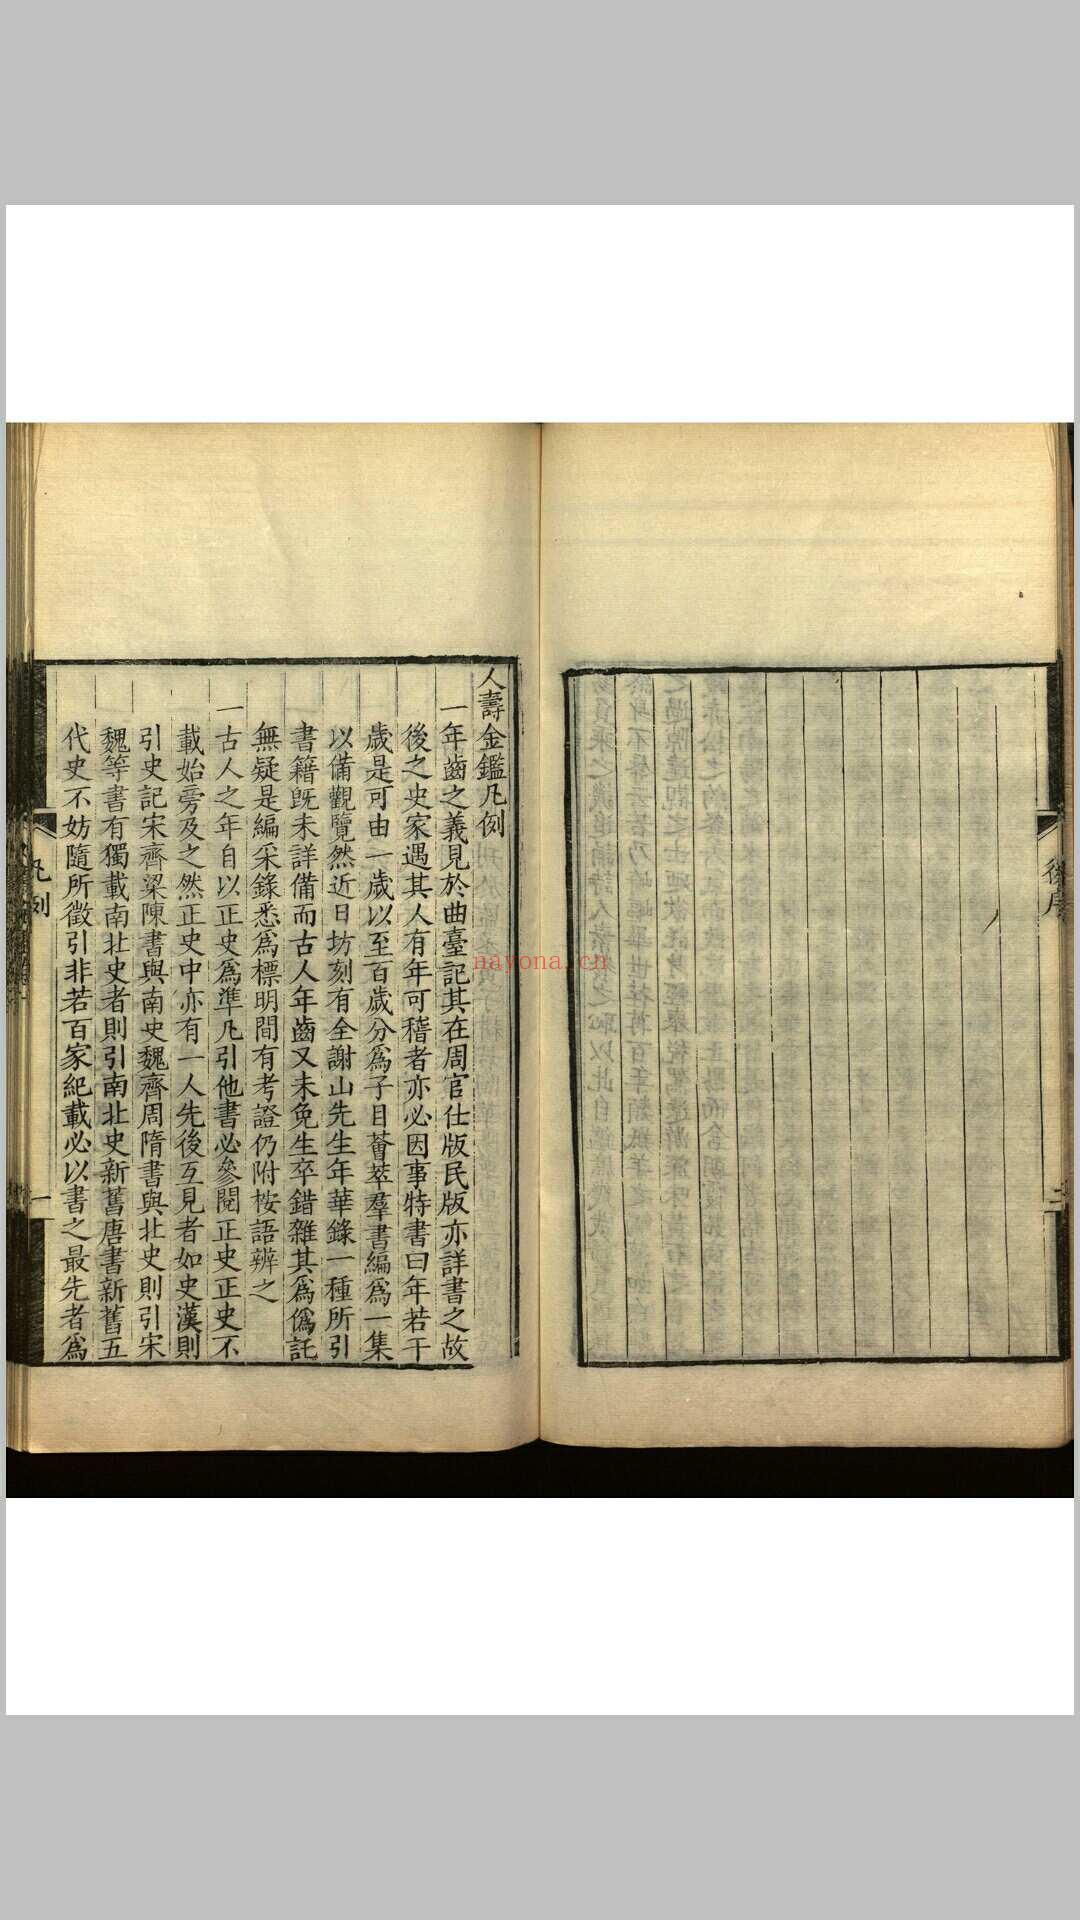 後序
二
人壽金鑑凡例
一年齒之義見於曲臺記其在周官仕版民版亦詳書之故
後之史家遇其人有年可稽者亦必因事特書曰年若干
歲是可由一歲以至百歲分爲子目薈萃羣書編爲一集
以備觀覽然近日坊刻有全謝山先生年華錄一種所引
書籍旣未詳備而古人年齒又未免生卒錯雜其爲僞託
無疑是編采錄悉爲標明間有考證仍附桉語辨之
一古人之年自以正史爲準凡引他書必參閱正史正史不
載始旁及之然正史中亦有一人先後互見者如史漢則
引史記宋齊梁陳書與南史魏齊周隋書與北史則引宋
魏等書有獨載南北史者則引南北史新舊唐書新舊五
代史不妨隨所徵引非若百家紀載必以書之最先者爲
凡例
一
nayona.cn